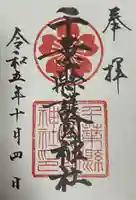 奉拝
千葉縣護國神社
令和五年十月四日